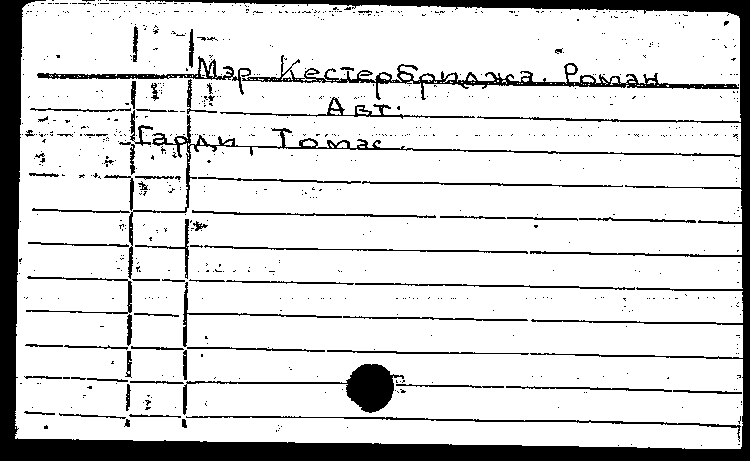 Мэр Кестербриджа. Роман
Авт:
Гарди, Томас.